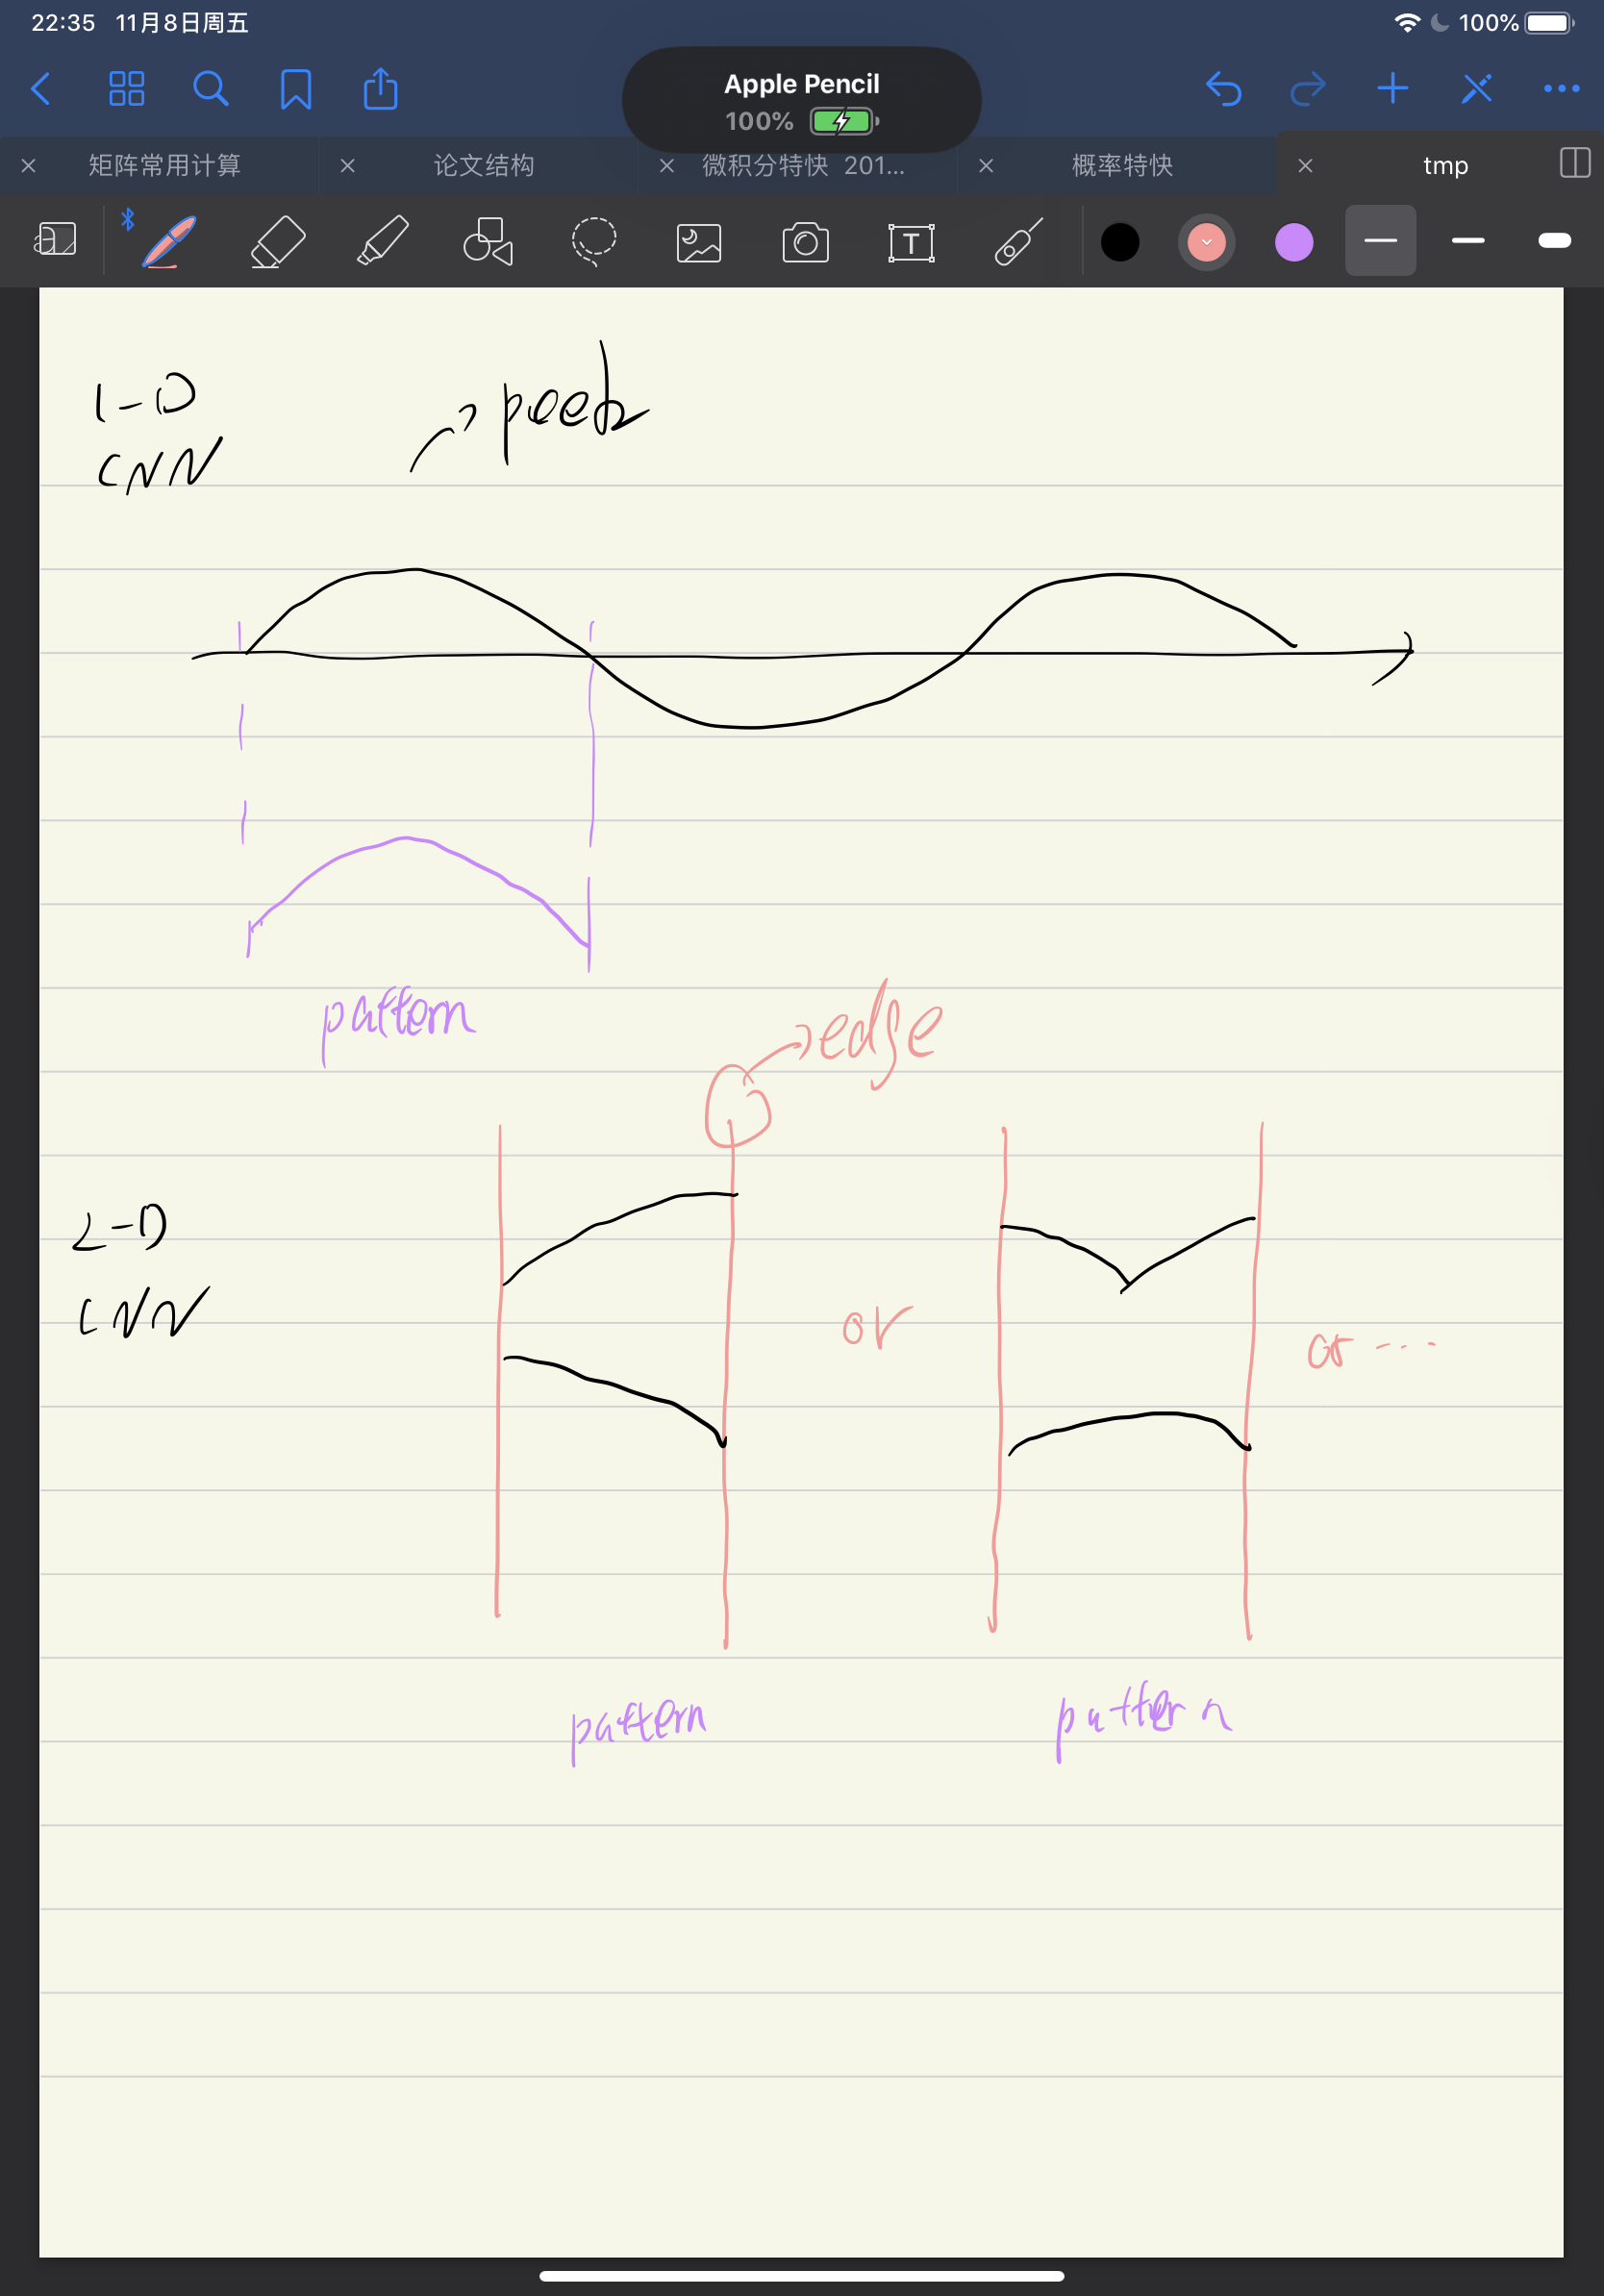 22:35 11月8日周五
100%
Apple Pencil
100%
矩阵常用计算
论文结构
微积分特快 201...
概率特快
tmp
T
1-D
CNN
pattern
edge
2-D
CNN
or
or ...
pattern
pattern